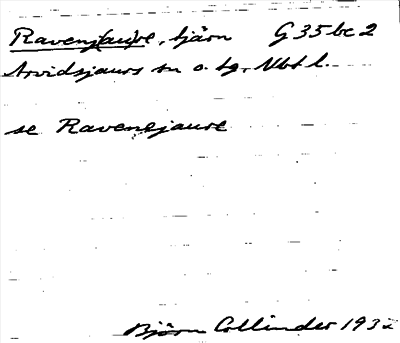 Ravenjaure, tjärn G 35 bc 2
Arvidsjaurs sn o. tg, Nbt l.
se Ravenejaure
Björn Collinder 1932